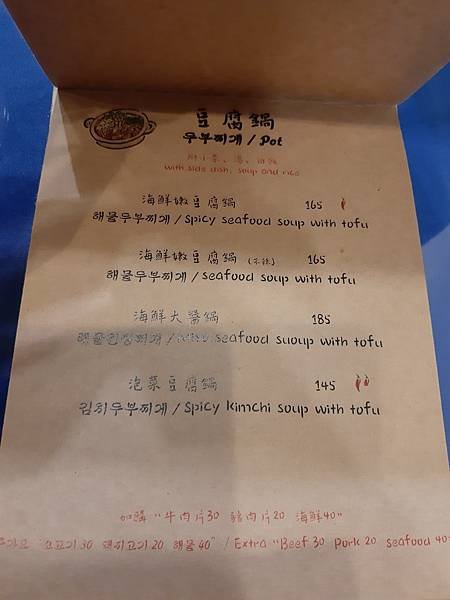 豆腐鍋
두부찌개 / Pot
附小菜、湯、白飯
with side dish, soup and rice
海鮮嫩豆腐鍋 165
해물두부찌개 / Spicy seafood soup with tofu
海鮮嫩豆腐鍋 (不辣) 165
해물두부찌개 / seafood soup with tofu
海鮮大醬鍋 185
해물된장찌개 / seafood suoup with tofu
泡菜豆腐鍋 145
김치두부찌개 / Spicy kimchi soup with tofu
加購 "牛肉片30 豬肉片20 海鮮40"
"소고기30 돼지고기20 해물40" / Extra "Beef 30 Pork 20 seafood 40